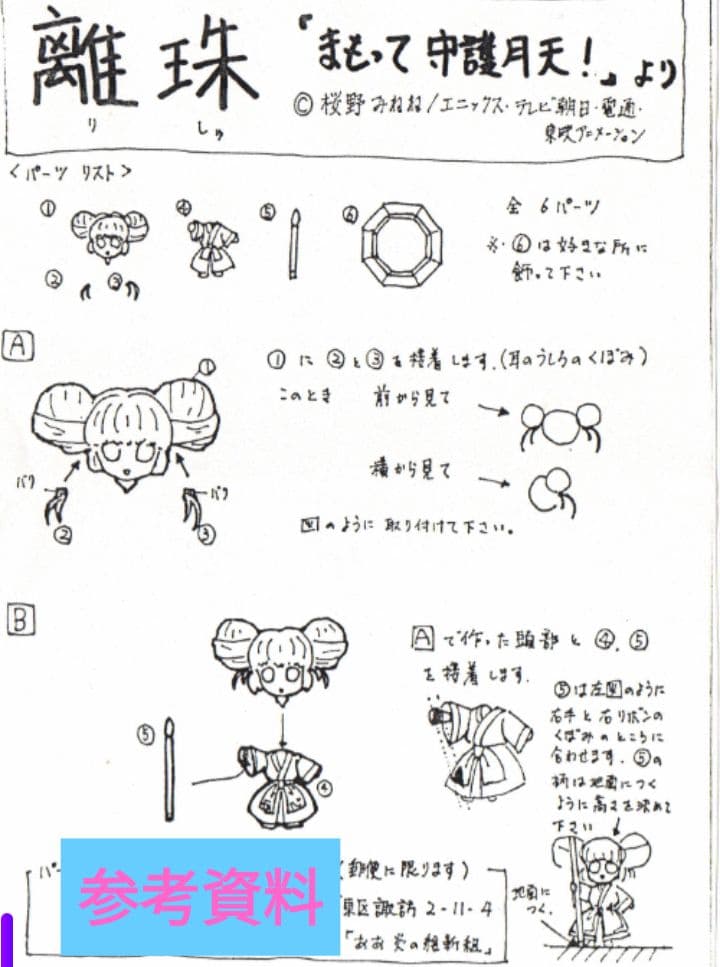 離珠 『まもって守護月天!』より
り しゅ
© 桜野みねね/エニックス・テレビ朝日・電通・
東映アニメーション
<パーツ リスト>
① ④ ⑤ ⑥
② ③
全 6パーツ
※ ⑥は好きな所に
飾って下さい
A
①
①に②と③を接着します.(耳のうしろのくぼみ)
このとき 前から見て
横から見て
図のように取り付けて下さい。
バリ バリ
② ③
B
Aで作った頭部と④,⑤
を接着します.
⑤
④
⑤は左図のように
右手と右リボンの
くぼみのところに
合わせます.⑤の
柄は地面につく
ように高さを決めて
下さい
地面に
つく.
パー
(郵便に限ります)
東区諏訪 2-11-4
「おお炎の維新組」
参考資料